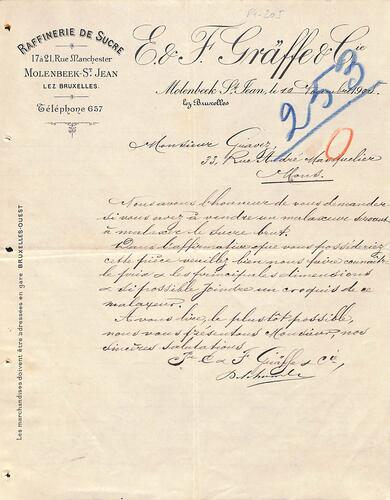 P4-205
RAFFINERIE DE SUCRE
17 à 21, Rue Manchester
MOLENBEEK-ST. JEAN
LEZ BRUXELLES.
Téléphone 657
E. & F. Gräffe & Cie
Molenbeek St. Jean, le 12 1905
lez Bruxelles
253
0
Monsieur
33, Rue André Masquelier
Mons.
Nous avons l'honneur de vous demander
si vous avez à vendre un malaxeur servant
à malaxer le sucre brut.
Dans l'affirmative que vous possédiez
cette pièce veuillez bien nous faire connaître
le prix & les principales dimensions
& si possible joindre un croquis de ce
malaxeur.
A vous lire, le plus tôt possible,
nous vous présentons Monsieur, nos
sincères salutations.
Pr E & F. Gräffe & Cie,
Les marchandises doivent être adressées en gare BRUXELLES-OUEST